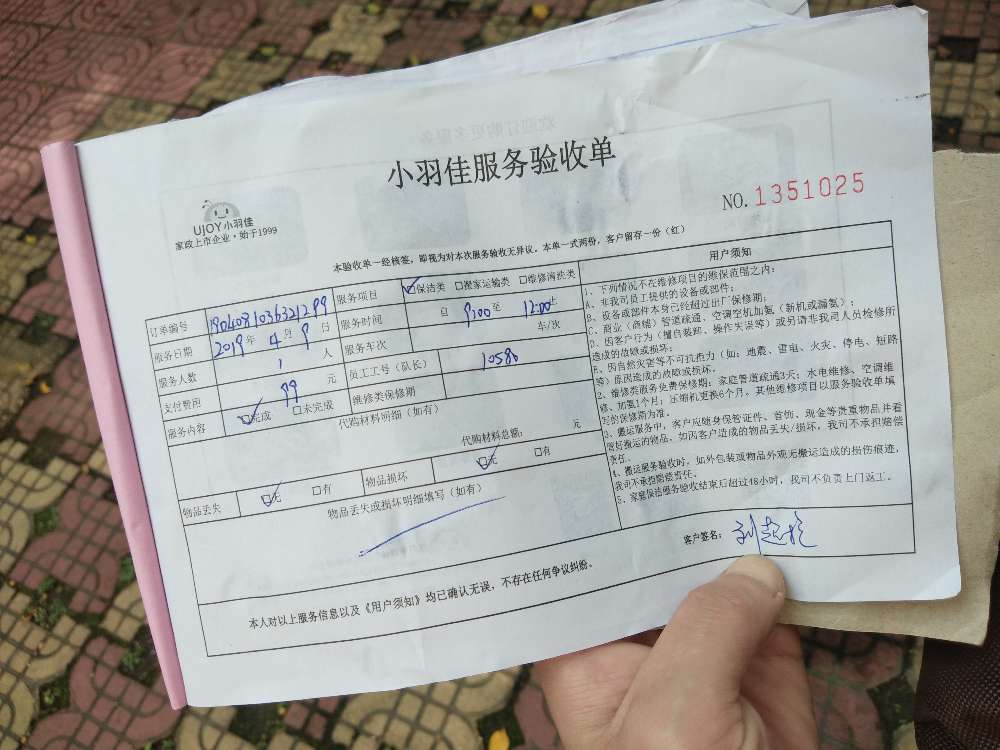 小羽佳服务验收单
UJOY小羽佳
家政上市企业·始于1999
NO. 1351025
本验收单一经核签，即视为对本次服务验收无异议。本单一式两份，客户留存一份（红）
订单编号 1904081036321299 服务项目 ☑保洁类 □搬家运输类 □维修清洗类
服务日期 2019年 4月 9日 服务时间 自 9:00 至 12:00 止
服务人数 1 人 服务车次 车/次
支付费用 99 元 员工工号（队长） 10580
服务内容 ☑完成 □未完成 维修类保修期
代购材料明细（如有）
代购材料总额： 元
物品丢失 ☑无 □有 物品损坏 ☑无 □有
物品丢失或损坏明细填写（如有）
用户须知
1、下列情况不在维修项目的维保范围之内：
A、非我司员工提供的设备或部件；
B、设备或部件本身已经超过出厂保修期；
C、商业（商铺）管道疏通、空调空机加氨（新机或漏氨）；
D、因客户行为（擅自装卸、操作失误等）或另请非我司人员检修所
造成的故障或损坏；
E、因自然灾害等不可抗推力（如：地震、雷电、火灾、停电、短路
等）原因造成的故障或损坏。
2、维修类服务免费保修期：家庭管道疏通3天；水电维修、空调维
修、加氨1个月；压缩机更换6个月。其他维修项目以服务验收单填
写的保修期为准。
3、搬运服务中，客户应随身保管证件、首饰、现金等贵重物品并看
管好搬运的物品，如因客户造成的物品丢失/损坏，我司不承担赔偿
责任。
4、搬运服务验收时，如外包装或物品外观无搬运造成的损伤痕迹，
我司不承担赔偿责任。
5、家庭保洁服务验收结束后超过48小时，我司不负责上门返工。
客户签名：
本人对以上服务信息以及《用户须知》均已确认无误，不存在任何争议纠纷。